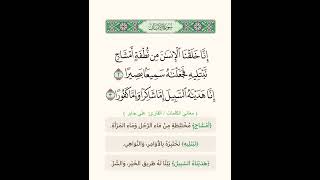 سُورَةُ الإِنسَان
إِنَّا خَلَقْنَا الْإِنسَٰنَ مِن نُّطْفَةٍ أَمْشَاجٍ
نَّبْتَلِيهِ فَجَعَلْنَٰهُ سَمِيعًۢا بَصِيرًا ٢
إِنَّا هَدَيْنَٰهُ السَّبِيلَ إِمَّا شَاكِرًا وَإِمَّا كَفُورًا ٣
( معاني الكلمات / القارئ: علي جابر )
﴿أَمْشَاجٍ﴾ مُخْتَلِطَةٍ مِنْ مَاءِ الرَّجُلِ وَمَاءِ المَرْأَةِ.
﴿نَبْتَلِيهِ﴾ نَخْتَبِرُهُ بِالأَوَامِرِ، وَالنَّوَاهِي.
﴿هَدَيْنَاهُ السَّبِيلَ﴾ بَيَّنَّا لَهُ طَرِيقَ الخَيْرِ، وَالشَّرِّ.